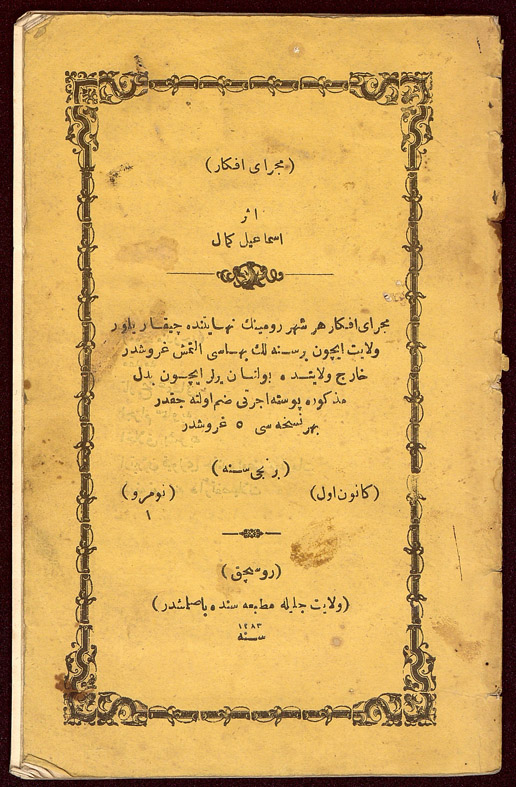 (مجرای افكار)
اثر
اسماعیل كمال
مجرای افكار هر شهر رومینك نهایتنده چیقار یاور
ولایت ایچون برسنه لك بهاسی التمش غروشدر
خارج ولایتده بولنان یرلر ایچون بدل
مذكوره پوسته اجرتی ضم اولنه جقدر
بهر نسخه سی ٥ غروشدر
(برنجی سنه)
(كانون اول) (نومرو)
١
(روسجق)
(ولایت جلیله مطبعه سنده باصلمشدر)
١٢٨٣
سنه